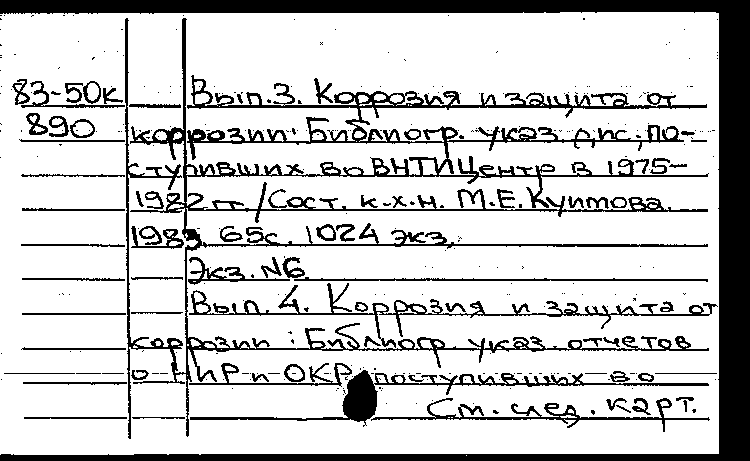 83-50к Вып.3. Коррозия и защита от
890 коррозии: Библиогр. указ. дис., по-
ступивших во ВНТИЦентр в 1975-
1982 гг. / Сост. к.х.н. М.Е. Куимова.
1983. 65с. 1024 экз.
Экз. N6
Вып. 4. Коррозия и защита от
коррозии : Библиогр. указ. отчетов
о НИР и ОКР, поступивших во
См. след. карт.